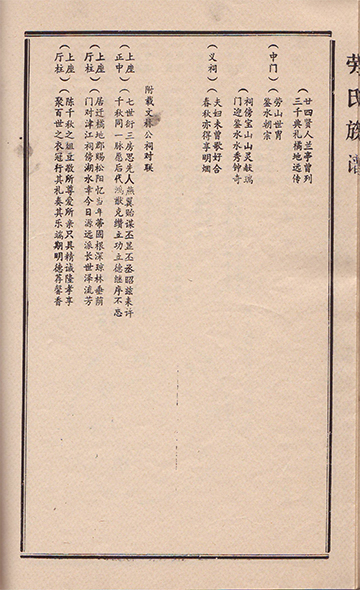 劳氏族谱
廿四贤人兰亭曾列
三千典礼橘地远传
（中门）
劳山世胄
鉴水朝宗
祠傍宝山山灵毓瑞
门迎鉴水水秀钟奇
（义祠）
夫妇未曾歌好合
春秋亦得享明烟
附载文禄公祠对联
（上座
正中）
七世衍三房思先人燕翼贻谋丕显丕承昭兹来许
千秋同一脉愿后代鸿猷克缵立功立德继序不忘
（上座
厅柱）
居迁橘地郡赐松阳忆当年蒂固根深琼林垂荫
门对津江祠傍湖水幸今日源远派长世泽流芳
（上座
厅柱）
陈千秋之俎豆敬所尊爱所亲只具精诚隆孝享
聚百世之衣冠行其礼奏其乐端期明德荐馨香